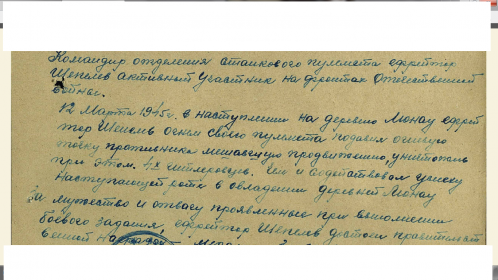 Командир отделения станкового пулемета ефрейтор
Шепель активный участник на фронтах Отечественной
войны.
12 Марта 1945г. в наступлении на деревню Люнау ефрей
тор Шепель огнем своего пулемета подавил огневую
точку противника мешавшую продвижению, уничтожив
при этом 4х гитлеровцев. Чем и содействовал успеху
наступающей роте в овладении деревней Люнау
За мужество и отвагу проявленные при выполнении
боевого задания, ефрейтор Шепель достоин правительст
венной награды